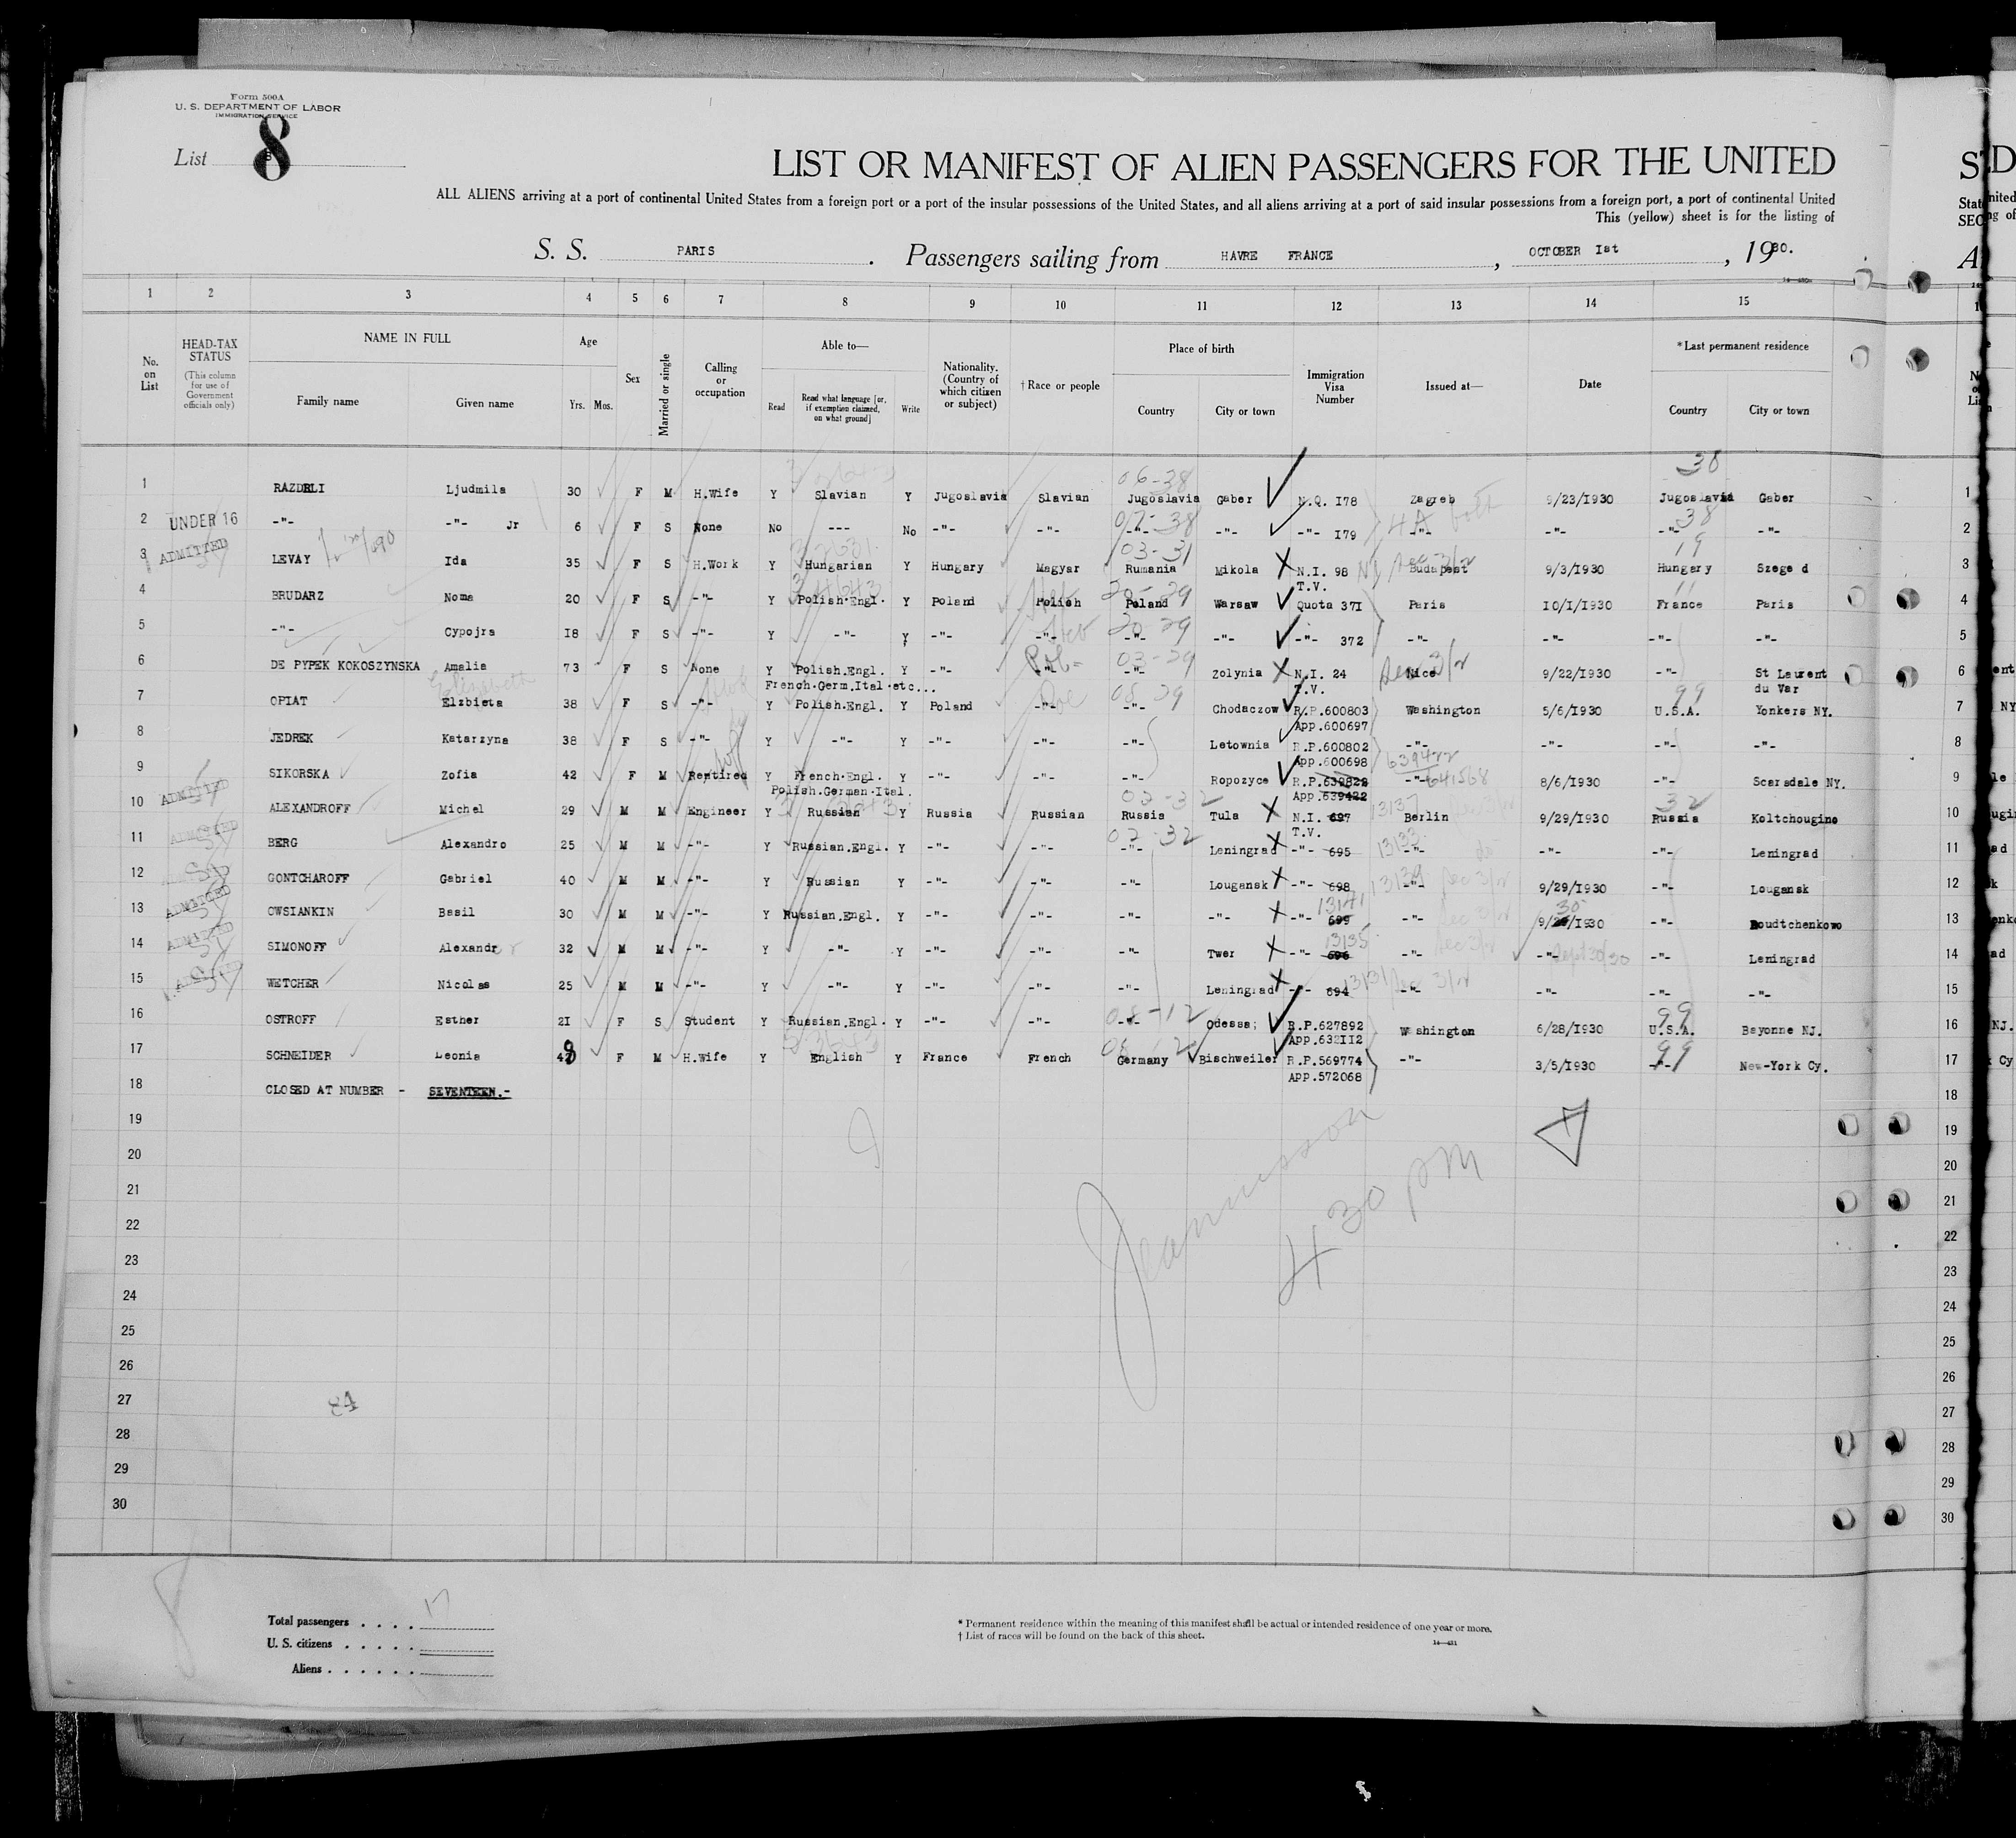 Form 500A
U. S. DEPARTMENT OF LABOR
IMMIGRATION SERVICE
List 8
LIST OR MANIFEST OF ALIEN PASSENGERS FOR THE UNITED
ALL ALIENS arriving at a port of continental United States from a foreign port or a port of the insular possessions of the United States, and all aliens arriving at a port of said insular possessions from a foreign port, a port of continental United
This (yellow) sheet is for the listing of
S. S. PARIS. Passengers sailing from HAVRE FRANCE, OCTOBER Ist, 1930.
1 2 3 4 5 6 7 8 9 10 11 12 13 14 15
No. on List
HEAD-TAX STATUS (This column for use of Government officials only)
NAME IN FULL Family name Given name
Age Yrs. Mos.
Sex
Married or single
Calling or occupation
Able to— Read Read what language [or, if exemption claimed, on what ground] Write
Nationality. (Country of which citizen or subject)
† Race or people
Place of birth Country City or town
Immigration Visa Number
Issued at—
Date
* Last permanent residence Country City or town
38
06-38
1 RAZDRLI Ljudmila 30 F M H.Wife Y Slavian Y Jugoslavia Slavian Jugoslavia Gaber N.Q. I78 Zagreb 9/23/1930 Jugoslavia Gaber 1
07-38 38
2 UNDER 16 -"- -"- Jr 6 F S None No --- No -"- -"- -"- -"- -"- I79 -"- -"- -"- -"- 2
03-31 19
3 ADMITTED LEVAY Ida 35 F S H.Work Y Hungarian Y Hungary Magyar Rumania Mikola N.I. 98 Budapest 9/3/1930 Hungary Szege d 3
T.V.
20-29 11
4 BRUDARZ Noma 20 F S -"- Y Polish.Engl. Y Poland Polish Poland Warsaw Quota 37I Paris 10/1/1930 France Paris 4
20-29
5 -"- Cypojra I8 F S -"- Y -"- Y -"- -"- -"- -"- -"- 372 -"- -"- -"- -"- 5
Pol- 03-29 Sec 3/2
6 DE PYPEK KOKOSZYNSKA Amalia 73 F S None Y Polish.Engl. Y -"- -"- -"- Zolynia N.I. 24 Nice 9/22/1930 -"- St Laurent 6
French.Germ.Ital.etc... T.V. du Var
Elizabeth 08 29 99
7 OPIAT Elzbieta 38 F S -"- Y Polish.Engl. Y Poland -"- -"- Chodaczow R.P.600803 Washington 5/6/1930 U.S.A. Yonkers NY. 7
App.600697
8 JEDREK Katarzyna 38 F S -"- Y -"- Y -"- -"- -"- Letownia R.P.600802 -"- -"- -"- -"- 8
App.600698 639422
9 SIKORSKA Zofia 42 F M Rentired Y French.Engl. Y -"- -"- -"- Ropozyce R.P.639822 -"- 641568 8/6/1930 -"- Scarsdale NY. 9
Polish.German.Ital. App.639422
02-32 13137 32
10 ADMITTED ALEXANDROFF Michel 29 M M Engineer Y Russian Y Russia Russian Russia Tula N.I. 697 Berlin 9/29/1930 Russia Koltchougino 10
T.V.
02-32 13133 do
11 ADMITTED BERG Alexandro 25 M M -"- Y Russian.Engl. Y -"- -"- -"- Leningrad -"- 695 -"- -"- -"- Leningrad 11
13139 Sec 3/2
12 GONTCHAROFF Gabriel 40 M M -"- Y Russian Y -"- -"- -"- Lougansk -"- 698 -"- 9/29/1930 -"- Lougansk 12
13141 Sec 3/2 30
13 ADMITTED OWSIANKIN Basil 30 M M -"- Y Russian.Engl. Y -"- -"- -"- -"- -"- 699 -"- 9/29/1930 -"- Roudtchenkowo 13
13135 Sec 3/2 Sept 30/30
14 ADMITTED SIMONOFF Alexandr 32 M M -"- Y -"- Y -"- -"- -"- Twer -"- 696 -"- -"- -"- Leningrad 14
13131 Sec 3/2
15 ADMITTED WETCHER Nicolas 25 M M -"- Y -"- Y -"- -"- -"- Leningrad -"- 694 -"- -"- -"- -"- 15
08-12 99
16 OSTROFF Esther 2I F S Student Y Russian.Engl. Y -"- -"- -"- Odessa; R.P.627892 Washington 6/28/1930 U.S.A. Bayonne NJ. 16
App.632II2
99
17 SCHNEIDER Leonia 48 F M H.Wife Y English Y France French Germany Bischweiler R.P.569774 -"- 3/5/1930 -"- New-York Cy. 17
APP.572068
18 CLOSED AT NUMBER - SEVENTEEN.- 18
19 19
20 20
21 21
22 22
23 23
24 24
25 25
26 26
27 27
28 28
29 29
30 30
4 30 PM
Total passengers . . . . 17
U. S. citizens . . . . .
Aliens . . . . . .
* Permanent residence within the meaning of this manifest shall be actual or intended residence of one year or more.
† List of races will be found on the back of this sheet.